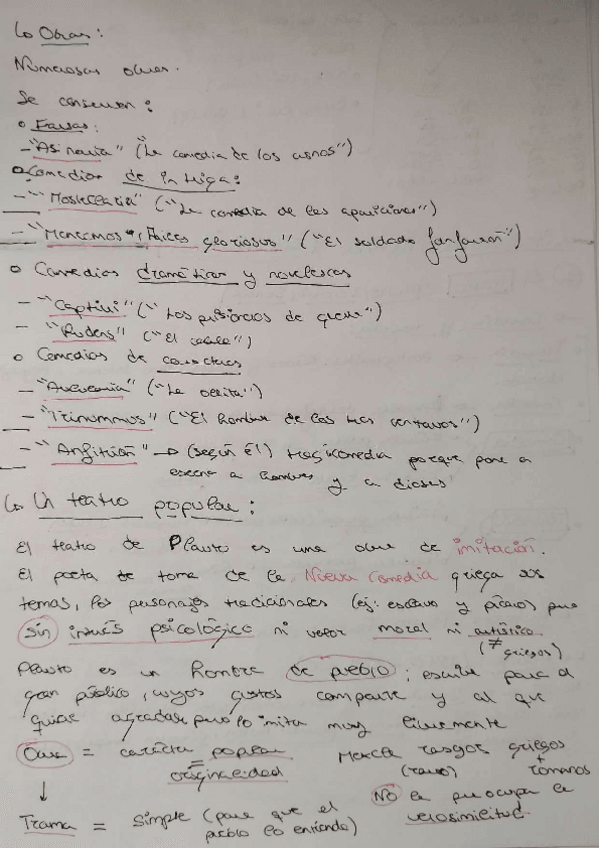 ↳ Obras:
Numerosas obras.
Se conservan:
o Farsas:
- "Asinaria" ("La comedia de los asnos")
o Comedias de intriga:
- "Mostellaria" ("La comedia de las apariciones")
- "Menecmos", Miles gloriosus" ("El soldado fanfarrón")
o Comedias dramáticas y novelescas
- "Captivi" ("Los prisioneros de guerra")
- "Rudens" ("El cable")
o Comedias de caracteres
- "Aulularia" ("La ollita")
- "Trinummus" ("El hombre de las tres centavos")
- "Anfitrión" → (según él) tragicomedia porque pone en
escena a hombres y a dioses
↳ Un teatro popular:
El teatro de Plauto es una obra de imitación.
El poeta toma de la Nueva Comedia griega sus
temas, los personajes tradicionales (ej: esclavo y pícaro) pero
sin interés psicológico ni valor moral ni artístico.
(≠ griegos)
Plauto es un hombre de pueblo; escribe para el
gran público, cuyos gustos comparte y al que
quiere agradar pero lo imita muy libremente
Obra = carácter popular Mezcla rasgos griegos
= originalidad + romanos
↓ No le preocupa la
Trama = Simple (para que el verosimilitud.
pueblo lo entienda)